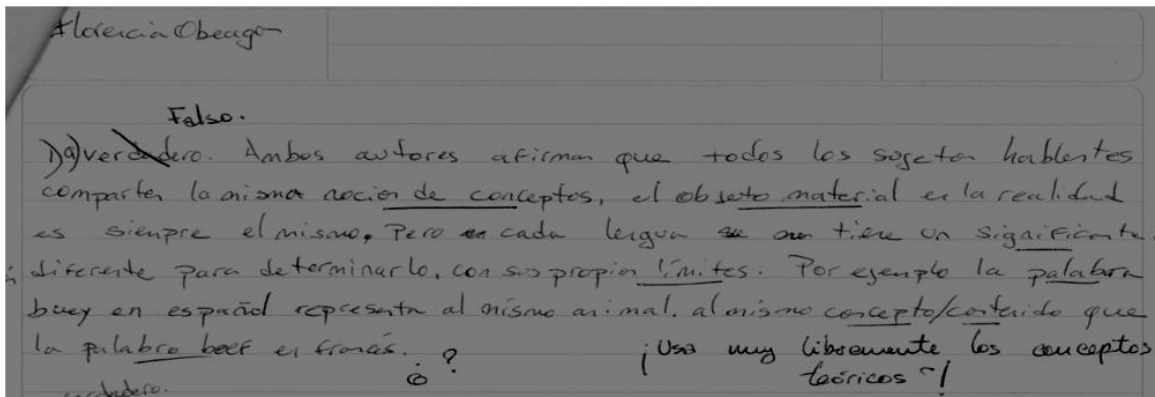 Florencia Obeago
Falso.
1)a) verdadero. Ambos autores afirman que todos los sujetos hablantes
comparten la misma noción de conceptos, el objeto material en la realidad
es siempre el mismo, Pero en cada lengua tiene un significante
diferente para determinarlo, con sus propios límites. Por ejemplo la palabra
buey en español representa al mismo animal, al mismo concepto/contenido que
la palabra boef en francés. ¿? ¡Usa muy libremente los conceptos
teóricos!
verdadero.